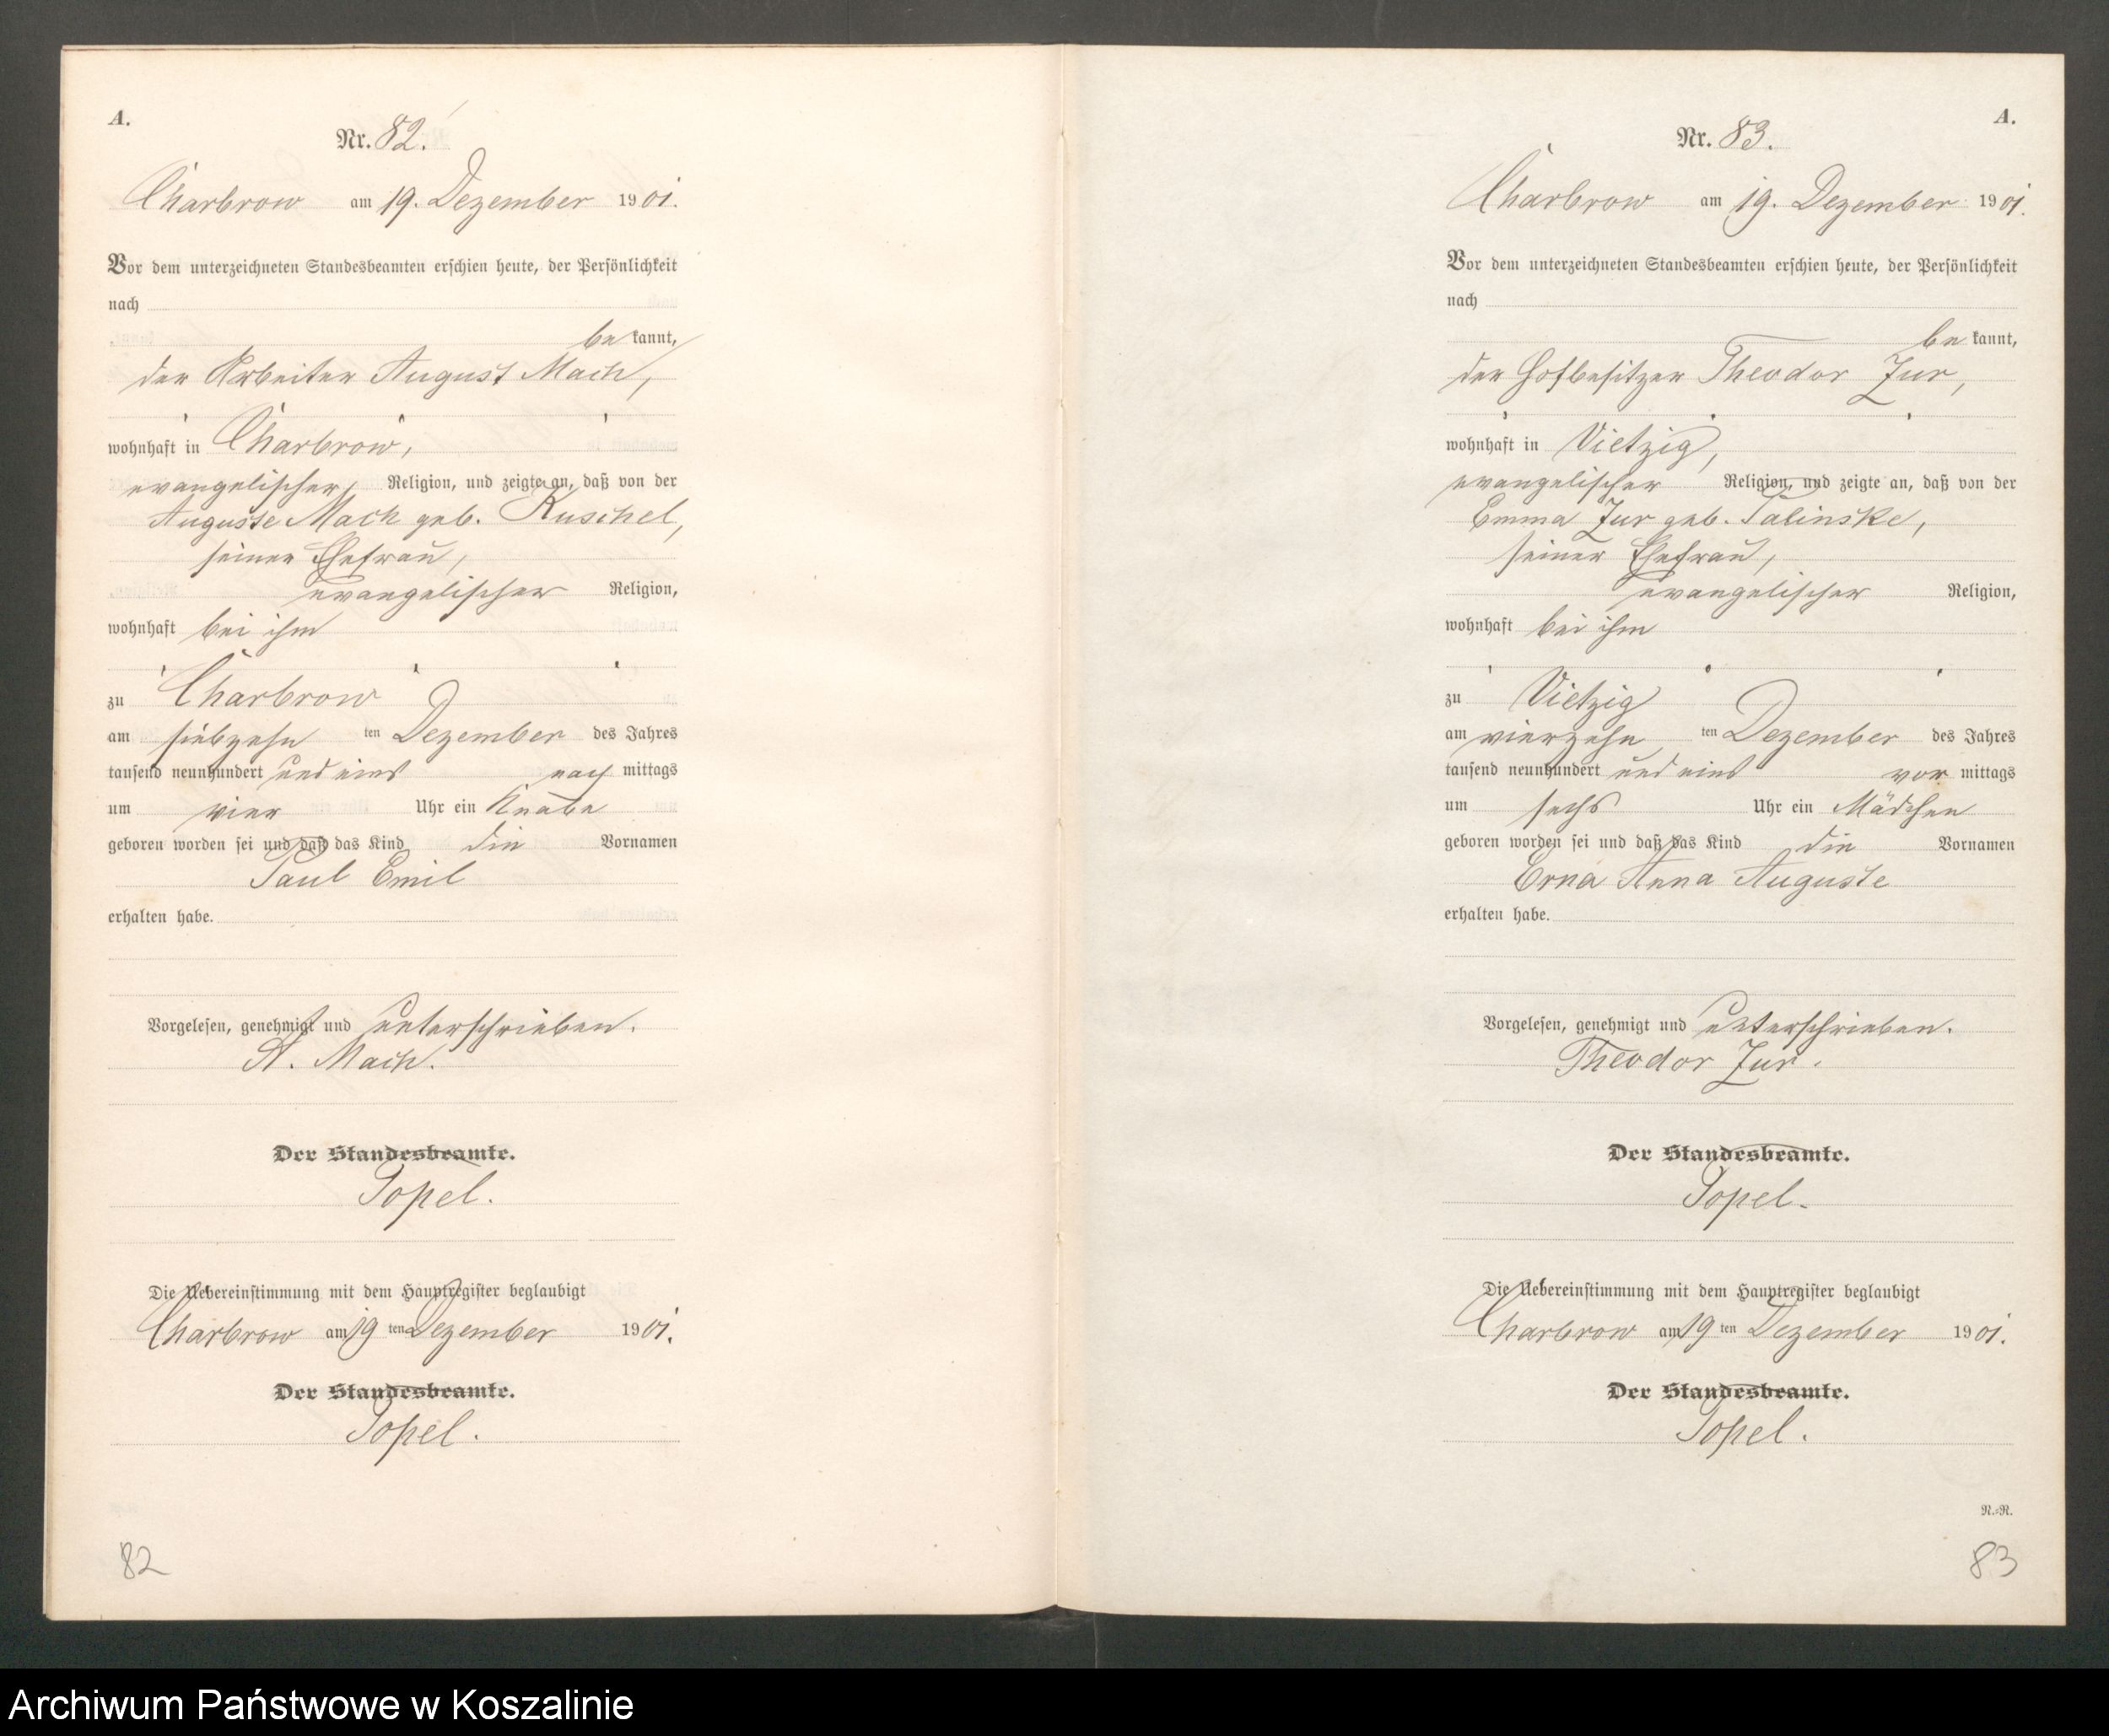 A.
Nr. 82.
Charbrow am 19. Dezember 1901.
Vor dem unterzeichneten Standesbeamten erschien heute, der Persönlichkeit
nach
bekannt,
der Arbeiter August Mach,
wohnhaft in Charbrow,
evangelischer Religion, und zeigte an, daß von der
Auguste Mach geb. Kuschel,
seiner Ehefrau,
evangelischer Religion,
wohnhaft bei ihm
zu Charbrow
am siebzehn ten Dezember des Jahres
tausend neunhundert und eins nach mittags
um vier Uhr ein Knabe
geboren worden sei und daß das Kind die Vornamen
Paul Emil
erhalten habe.
Vorgelesen, genehmigt und unterschrieben.
A. Mach.
Der Standesbeamte.
Topel.
Die Uebereinstimmung mit dem Hauptregister beglaubigt
Charbrow am 19 ten Dezember 1901.
Der Standesbeamte.
Topel.
82
A.
Nr. 83.
Charbrow am 19. Dezember 1901.
Vor dem unterzeichneten Standesbeamten erschien heute, der Persönlichkeit
nach
bekannt,
der Hofbesitzer Theodor Zur,
wohnhaft in Vietzig,
evangelischer Religion, und zeigte an, daß von der
Emma Zur geb. Talinske,
seiner Ehefrau,
evangelischer Religion,
wohnhaft bei ihm
zu Vietzig
am vierzehn ten Dezember des Jahres
tausend neunhundert und eins vor mittags
um sechs Uhr ein Mädchen
geboren worden sei und daß das Kind die Vornamen
Erna Anna Auguste
erhalten habe.
Vorgelesen, genehmigt und unterschrieben.
Theodor Zur.
Der Standesbeamte.
Topel.
Die Uebereinstimmung mit dem Hauptregister beglaubigt
Charbrow am 19 ten Dezember 1901.
Der Standesbeamte.
Topel.
N.=R.
83
Archiwum Państwowe w Koszalinie